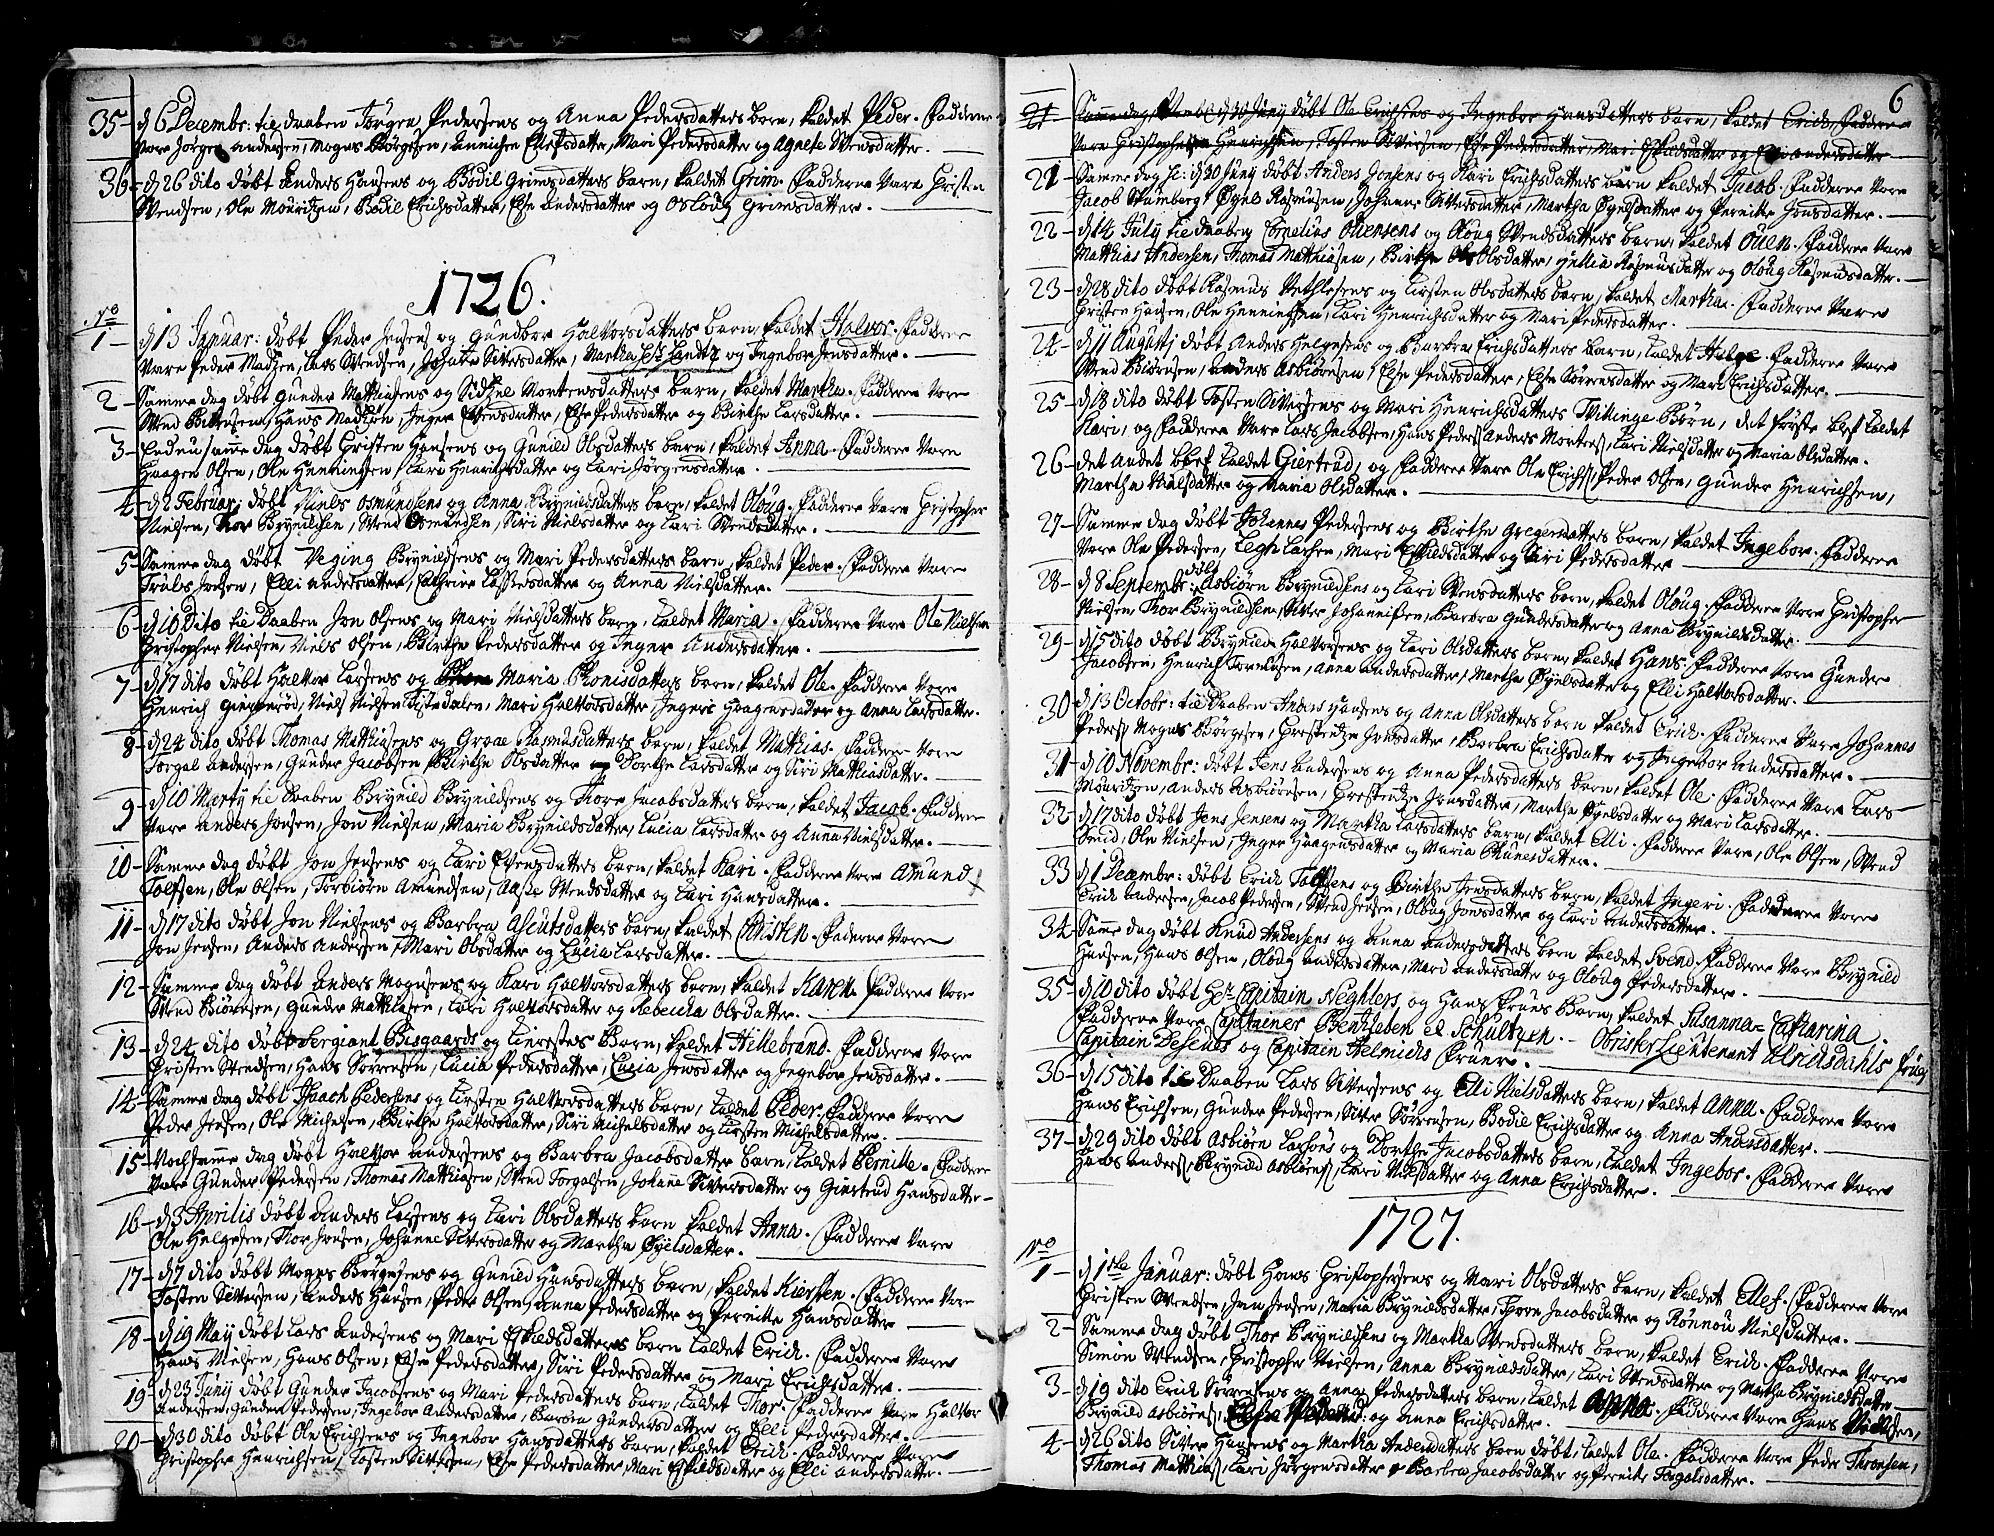 35 d 6 Decembr: til daaben Jörgen Pedersens og Anna Pedersdatters barn, kaldet Peder. Faddere
Vare Jörgen Andersen, Mogns Börgesen, Mari Pedersdatter og Agnete Svensdatter.
36 d 26 dito döbt Anders Hansens og Bodil Grimsdatters barn, kaldet Grim. Fadderne Vare Christen
Svendsen, Ole Mouritzen, Bodil Erichsdatter, Else Andersdatter og Oslöug Grimsdatter.
1726.
No
1 d 13 Januar: döbt Peder Jensens og Gundbor Haltvorsdatters barn, kaldet Halvor. Faddere
Vare Peder Madzen, Lars Svendsen, Johane Siversdatter, Martha Landtz og Ingebor Jensdatter.
2 Samme dag döbt Gunder Mathiasens og Sidzel Mortensdatters barn, kaldet Martha. Faddere Vare
Svend Biörnsen, Hans Madzen, Inger Evensdatter, Else Pedersdatter og Birthe Larsdatter.
3 Endnu samme dag döbt Christen Hansens og Gunild Olsdatters barn, kaldet Anna. Faddere Vare
Haagen Olsen, Ole Henningsen, Kari Henrichsdatter og Kari Jörgensdatter.
4 d 2 Februar: döbt Niels Osmundsens og Anna Brynildsdatters barn, kaldet Oloug. Faddere Vare Christopher
Nielsen, Thor Brynildsen, Svend Osmundsen, Siri Nielsdatter og Kari Svendsdatter.
5 Samme dag döbt Veging Brynildsens og Mari Pedersdatters barn, kaldet Peder. Faddere Vare
Truls Jensen, Elli Andersdatter, og Anna Nielsdatter.
6 d 10 Dito til Daaben Jon Olsens og Mari Nielsdatters barn, kaldet Maria. Faddere Vare Ole Nielsen
Christopher Nielsen, Niels Olsen, Birthe Pedersdatter og Inger Andersdatter.
7 d 17 dito döbt Haltvor Larsens og Maria barn, kaldet Ole. Faddere Vare
Henrich Niels Nielsen Mari Haltvorsdatter, Inger Haagensdatter og Anna Larsdatter.
8 d 24 dito döbt Thomas Mathiasens og Groae Rasmusdatters barn, kaldet Mathias. Faddere Vare
Torgal Andersen, Gunder Jacobsen, Birthe Olsdatter og Dorthe Larsdatter og Siri Mathiasdatter.
9 d 10 Marty til Daaben Brynild Brynildsens og Thore Jacobsdatters barn, kaldet Jacob. Faddere
Vare Anders Jonsen, Jon Nielsen, Maria Brynildsdatter, Lucia Larsdatter og Anna Nielsdatter.
10 Samme dag döbt Jon Jensens og Kari Evensdatters barn, kaldet Kari. Faddere Vare Amund
Tolfsen, Ole Olsen, Torbiörn Amundsen, Aasse Svendsdatter og Kari Hansdatter.
11 d 17 dito döbt Jon Nielsens og Barbra barn, kaldet Christen. Faddere Vare
Jon Jensen, Anders Andersen, Mari Olsdatter og Lucia Larsdatter.
12 Samme dag döbt Anders Mogensens og Kari Haltvorsdatters barn, kaldet Karen. Faddere Vare
Svend Biörnsen, Gunder Mathiasen, Kari Haltvorsdatter og Rebecka Olsdatter.
13 d 24 dito döbt Sergiant Bisgaards og Barn, kaldet Hillebrand. Faddere Vare
Christen Svendsen, Hans Sörrensen, Lucia Pedersdatter, Lucia Jensdatter og Ingebor Jensdatter.
14 Samme dag döbt Isaach Pedersens og Kirsten Haltvorsdatters barn, kaldet Peder. Faddere Vare
Peder Jensen, Ole Michelsen, Birthe Haltvorsdatter, Siri Michelsdatter og Kirsten Michelsdatter.
15 Noch samme dag döbt Haltvor Andersens og Barbra Jacobsdatter barn, kaldet Pernille. Faddere
Vare Gunder Pedersen, Thomas Mathiasen, Svend Torgalsen, Johane Siversdatter og Giertrud Hansdatter
16 d 3 Aprilis döbt Anders Larsens og Kari Olsdatters barn kaldet Anna. Faddere Vare
Ole Helgesen, Thor Jensen, Johanne Siversdatter og Martha Öyelsdatter.
17 d 7 dito döbt Mogns Börgesens og Gunild Hansdatters barn, kaldet Kiersten. Faddere Vare
Tosten Siversen, Anders Hansen, Peder Olsen, Anna Pedersdatter og Pernille Hansdatter
18 d 19 May döbt Lars Andersens og Mari Eskildsdatters barn kaldet Erich. Faddere Vare
Hans Nielsen, Hans Olsen, Else Pedersdatter, Siri Pedersdatter og Mari Erichsdatter.
19 d 23 Juny döbt Gunder Jacobsens og Mari Pedersdatters barn, kaldet Thor. Faddere Vare Haltvor
Andersen, Gunder Pedersen, Ingebor Andersdatter, Barbra Gundersdatter og Elli Pedersdatter.
20 d 30 dito döbt Ole Erichsens og Ingebor Hansdatters barn, kaldet Erich. Faddere Vare
Christopher Henrichsen, Tosten Siversen, Else Pedersdatter, Mari Eskildsdatter og Elli Andersdatter.
6
21 Samme dag d 30 Juny döbt Ole Erichsens og Ingebor Hansdatters barn, kaldet Erich, Faddere
Vare Christopher Henrichsen, Tosten Siversen, Else Pedersdatter, Mari Eskildsdatter og Elli Andersdatter
21 Samme dag d 30 Juny döbt Anders Jonsens og Kari Erichsdatters barn kaldet Jacob. Faddere Vare
Jacob Stumberg, Öyels Rasmusen, Johanne Siversdatter, Martha Öyelsdatter og Pernille Jonsdatter.
22 d 14 July til daaben Cornelius Oliensens og Oloug Svendsdatters barn, kaldet Ouen. Faddere Vare
Mathias Andersen, Thomas Mathiasen, Birthe Olsdatter, Rasmusdatter og Oloug Rasmusdatter.
23 d 28 dito döbt Rasmus og Kirsten Olsdatters barn, kaldet Martha. Faddere Vare
Christen Hansen, Ole Henningsen, Kari Henrichsdatter og Mari Pedersdatter.
24 d 11 Augustj döbt Anders Helgesens og Barbra Erichsdatters barn, kaldet Helge. Faddere Vare
Svend Biörnsen, Anders Asbiörnsen, Else Pedersdatter, Else Sörrensdatter og Mari Erichsdatter.
25 d 18 dito döbt Tosten Siversens og Mari Henrichsdatters Tvillinge Börn, det förste blef kaldet
Kari, og Faddere Vare Lars Jacobsen, Hans Peders, Anders Mortens, Kari Nielsdatter og Maria Olsdatter.
26 det andet blef kaldet Giertrud, og Faddere Vare Ole Erichs, Peder Olsen, Gunder Henrichsen,
Martha Nielsdatter og Maria Olsdatter.
27 Samme dag döbt Johannes Pedersens og Birthe barn, kaldet Ingebor. Faddere
Vare Ole Pedersen, Larsen, Mari Eskildsdatter og Kari Pedersdatter
28 d 8 Septembr: döbt Asbiörn Brynildsens og Kari Svendsdatters barn, kaldet Oloug. Faddere Vare Christopher
Nielsen, Thor Brynildsen, Siver Johannissen, Barbra Gundersdatter og Anna Brynildsdatter.
29 d 15 dito döbt Brynild Haltvorsens og Kari Olsdatters barn, kaldet Hans. Faddere Vare Gunder
Jacobsen, Henrich Anna Andersdatter, Martha Öyelsdatter og Elli Haltvorsdatter.
30 d 13 Octobr: til Daaben Anders Hansens og Anna Olsdatters barn kaldet Erich. Faddere Vare Johannes
Peders, Mogns Börgesen, Chrestendze Jensdatter, Barbra Erichsdatter og Ingebor Andersdatter.
31 d 10 Novembr: döbt Jens Andersens og Anna Pedersdatters barn, kaldet Ole. Faddere Vare Lars
Mouritzen, Anders Asbiörnsen, Chrestendze Jonsdatter, Martha Öyelsdatter og Mari Larsdatter.
32 d 17 dito döbt Jens Jensens og Martha Larsdatters barn, kaldet Elli. Faddere Vare, Ole Olsen, Svend
Smid, Ole Nielsen, Inger Haagensdatter og Maria
33 d 1 Decembr: döbt Erich Tolfsens og Birthe Jensdatters barn, kaldet Ingeri. Faddere Vare
Erich Andersen, Jacob Pedersen, Svend Jensen, Oloug Jonsdatter og Kari Andersdatter.
34 Samme dag döbt Knud Andersens og Anna Andersdatters barn kaldet Svend. Faddere Vare Brynild
Hansen, Hans Olsen, Oloug Andersdatter, Mari Andersdatter og Oloug Pedersdatter.
35 d 10 dito döbt Hr Capitain Neghlers og Hans Frues Barn, kaldet Susanna Catharina.
Faddere Vare Capitainer Bentzleben et Schultzen. Obrister Lieutenant Ulrichsdahls Frue
Capitain Desens og Capitain Helmichs Fruer.
36 d 15 dito til Daaben Lars Siversens og Elli Nielsdatters barn, kaldet Anna. Faddere Vare
Hans Erichsen, Gunder Pedersen, Siver Sörrensen, Bodil Erichsdatter og Anna Andersdatter.
37 d 29 dito döbt Asbiörn Larsens og Dorthe Jacobsdatters barn, kaldet Ingebor. Faddere Vare
Hans Anders, Brynild Asbiörns, Kari Nielsdatter og Anna Erichsdatter.
1727.
No
1 d 1ste Januar: döbt Hans Christophersens og Mari Olsdatters barn, kaldet Ellef. Faddere Vare
Christen Svendsen, Jensen, Maria Brynildsdatter, Thore Jacobsdatter og Rönnou Nielsdatter.
2 Samme dag döbt Thor Brynildsens og Martha Svendsdatters barn, kaldet Erich. Faddere Vare
Simon Svendsen, Christopher Nielsen, Anna Brynildsdatter, Kari Svendsdatter og Martha Brynildsdatter
3 d 19 dito Erich Sörrensens og Anna Pedersdatters barn, kaldet Anna. Faddere Vare Hans Nielsen,
Brynild Asbiörns, og Anna Erichsdatter.
4 d 26 dito Siver Hansens og Martha Andersdatters barn döbt, kaldet Ole. Faddere Vare Peder Thronsen,
Thomas Mathias, Kari Jörgensdatter, Barbra Jacobsdatter og Pernille Torgalsdatter.